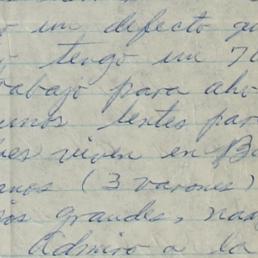 un defecto qu
tengo un 70
trabajo para aho
unos lentes par
es viven en B
anos (3 varones)
os grandes, na
Admiro a la